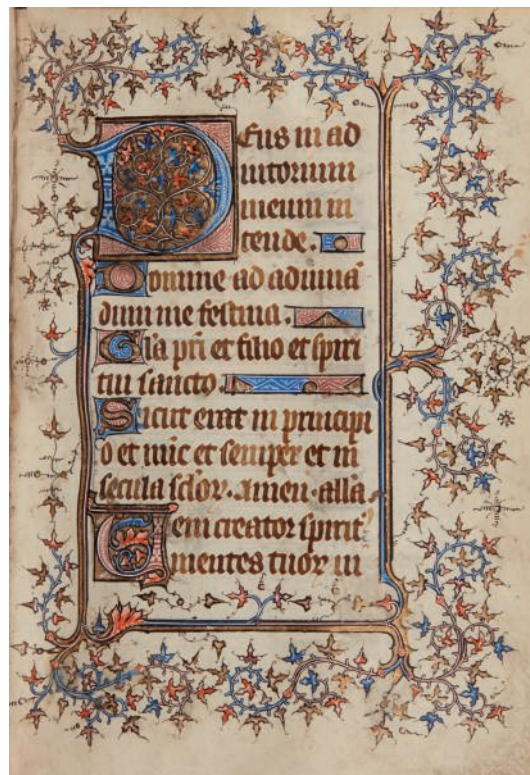 Deus in ad
iutorium
meum in
tende.
Domine ad adiuuā
dum me festina.
Gl̄a pr̄i et filio et spiri
tui sancto.
Sicut erat in principi
o et nūc et semper et in
secula sc̄lor. Amen. all̄a.
Veni creator spirit᾽
mentes tuoꝝ ui